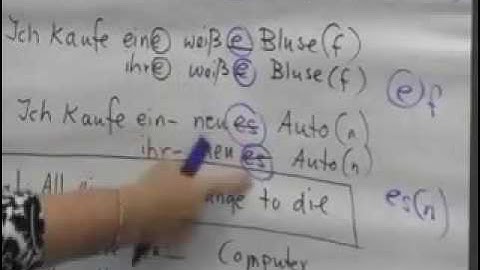 Ich Kaufe eine weiße Bluse (f)
ihre weiße Bluse (f)
e f
Ich Kaufe ein- neues Auto (n)
ihr- neues Auto (n)
All to die
es (n)
Computer